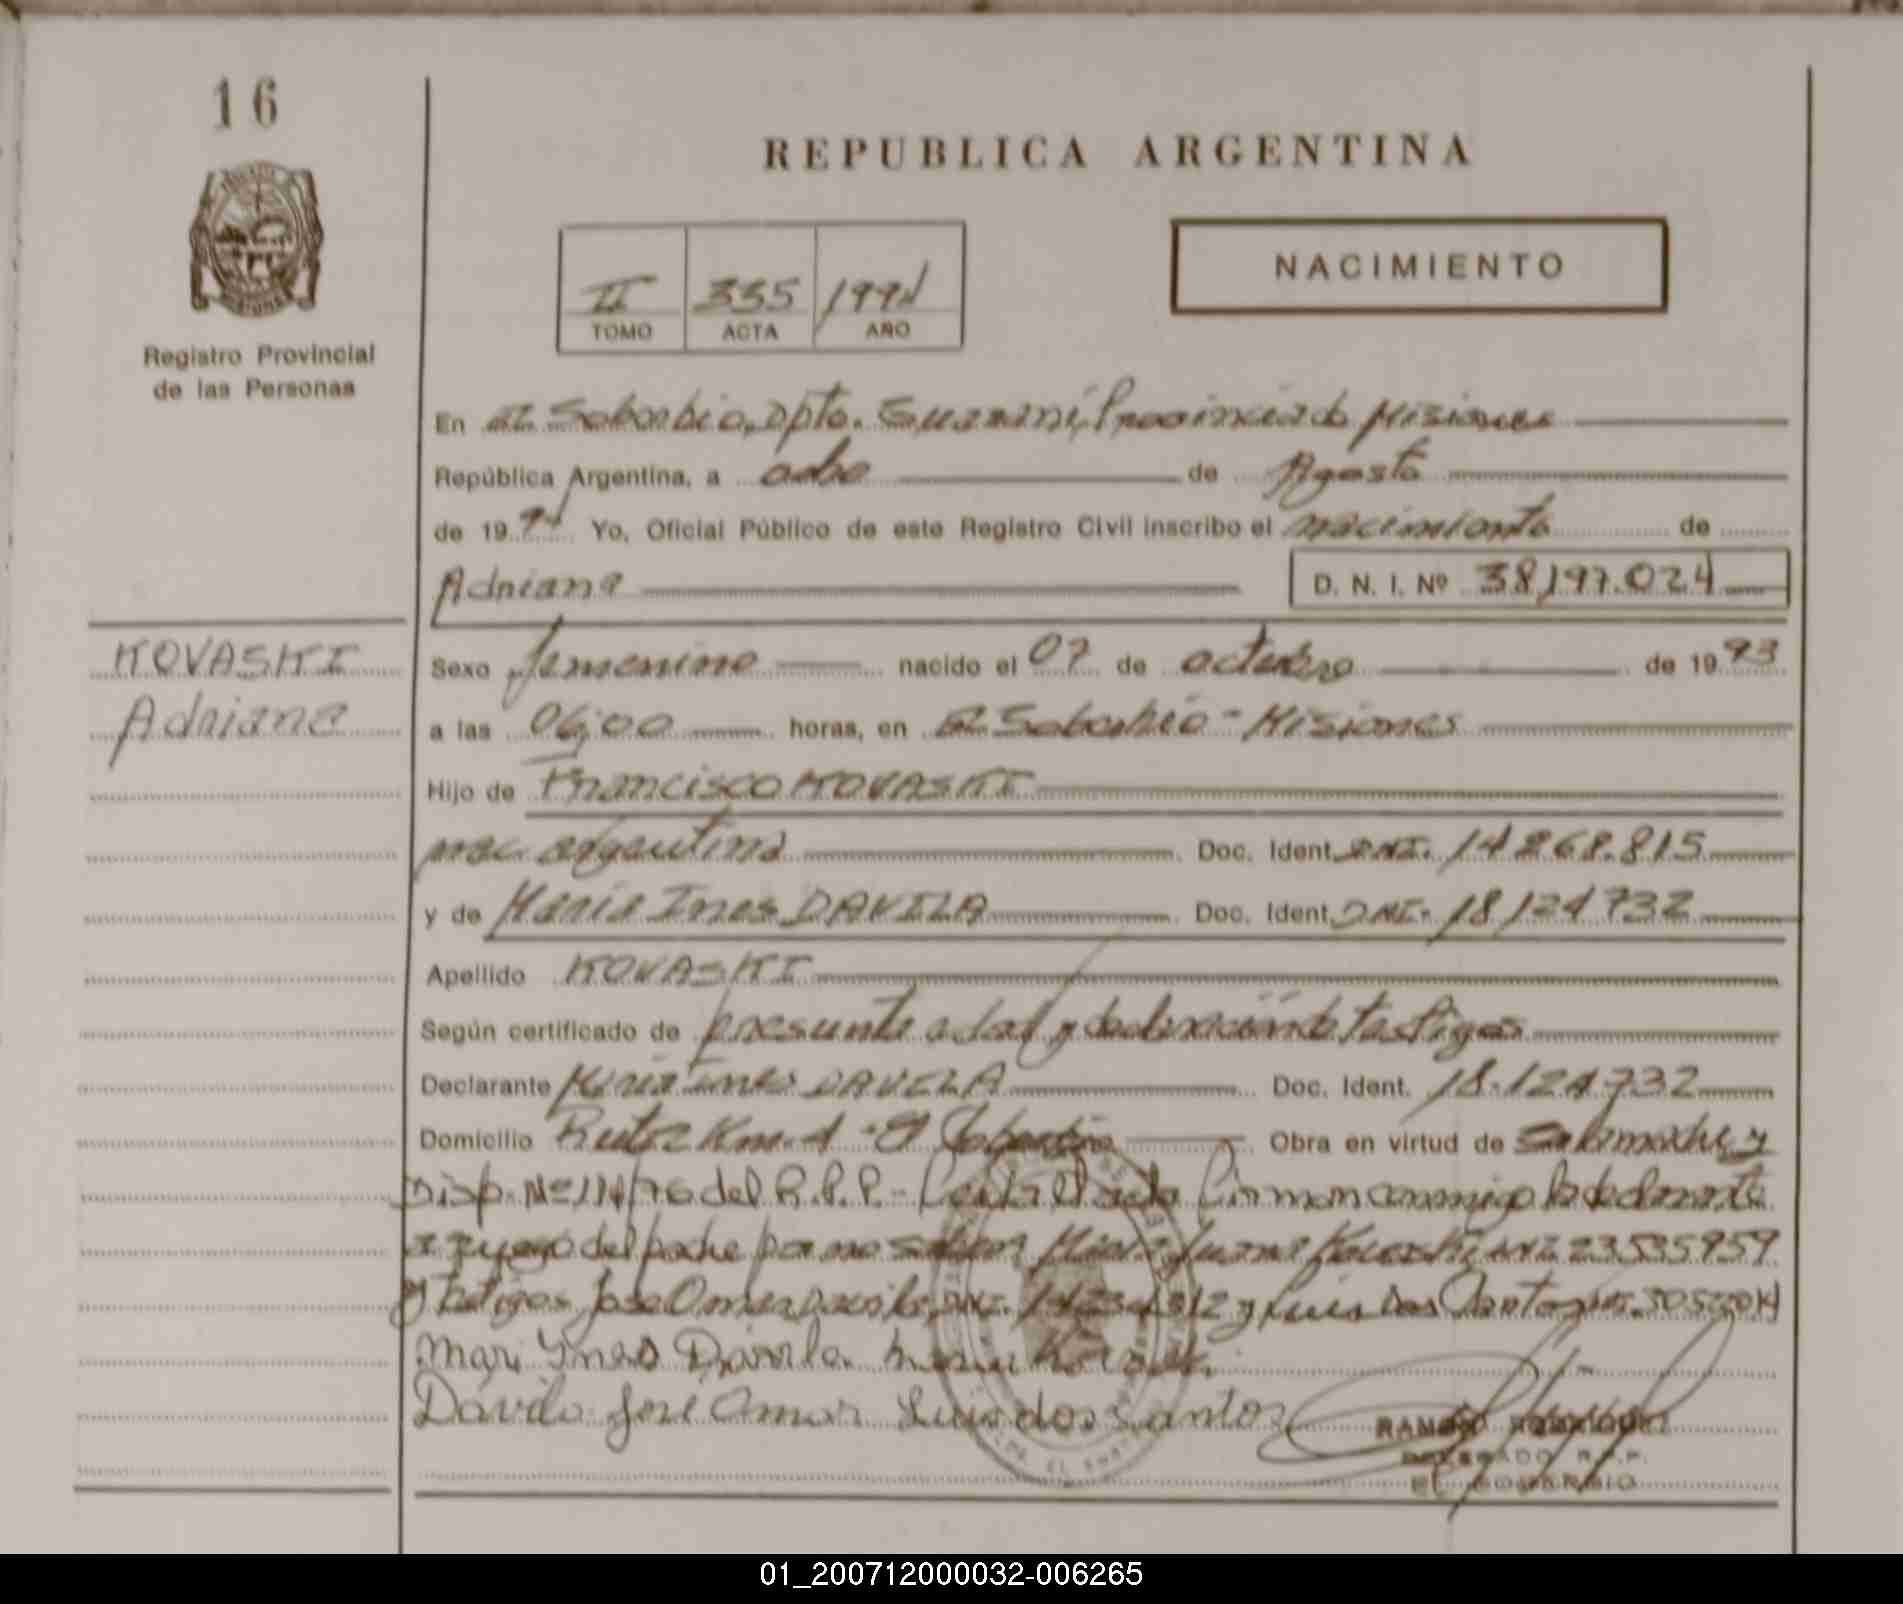 16
REPUBLICA ARGENTINA
NACIMIENTO
II 335 1994
TOMO ACTA AÑO
Registro Provincial
de las Personas
En El Soberbio, Dpto. Guaraní, Provincia de Misiones
República Argentina, a ocho de Agosto
de 1994 Yo, Oficial Público de este Registro Civil inscribo el nacimiento de
Adriana D. N. I. Nº 38,197.024
KOVASKI
Adriana
Sexo femenino nacido el 07 de octubre de 1993
a las 06,00 horas, en El Soberbio - Misiones
Hijo de Francisco KOVASKI
nac. argentina Doc. Ident. DNI. 14 268.815
y de María Ines DAVILA Doc. Ident. DNI. 18 124 732
Apellido KOVASKI
Según certificado de presunta edad y declaración de testigos
Declarante María Ines DAVILA Doc. Ident. 18.124.732
Domicilio Ruta 2 Km. 4 - El Soberbio Obra en virtud de ser la madre y
Disp. Nº 114/76 del R.P.P. - Leída el acta firman conmigo la declarante
a ruego del padre por no saber María Juana Kovaski DNI. 23535959
y testigos Jose Omar Davila, DNI. y Luis Dos Santos DNI.
Mari Ynes Davila
Davila José Omar Luis dos Santos
RAMON RODRIGUEZ
DELEGADO R.P.P.
EL SOBERBIO
01_200712000032-006265